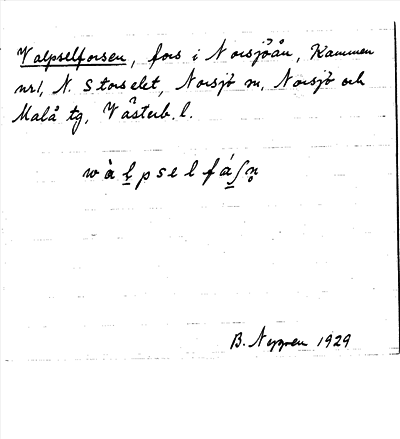 Valpselforsen, fors i Norsjöån, Kammen
nr 1, N. Storselet, Norsjö sn, Norsjö och
Malå tg, Västerb. l.
wàl̥pselfáʃn̥
B. Nygren 1929